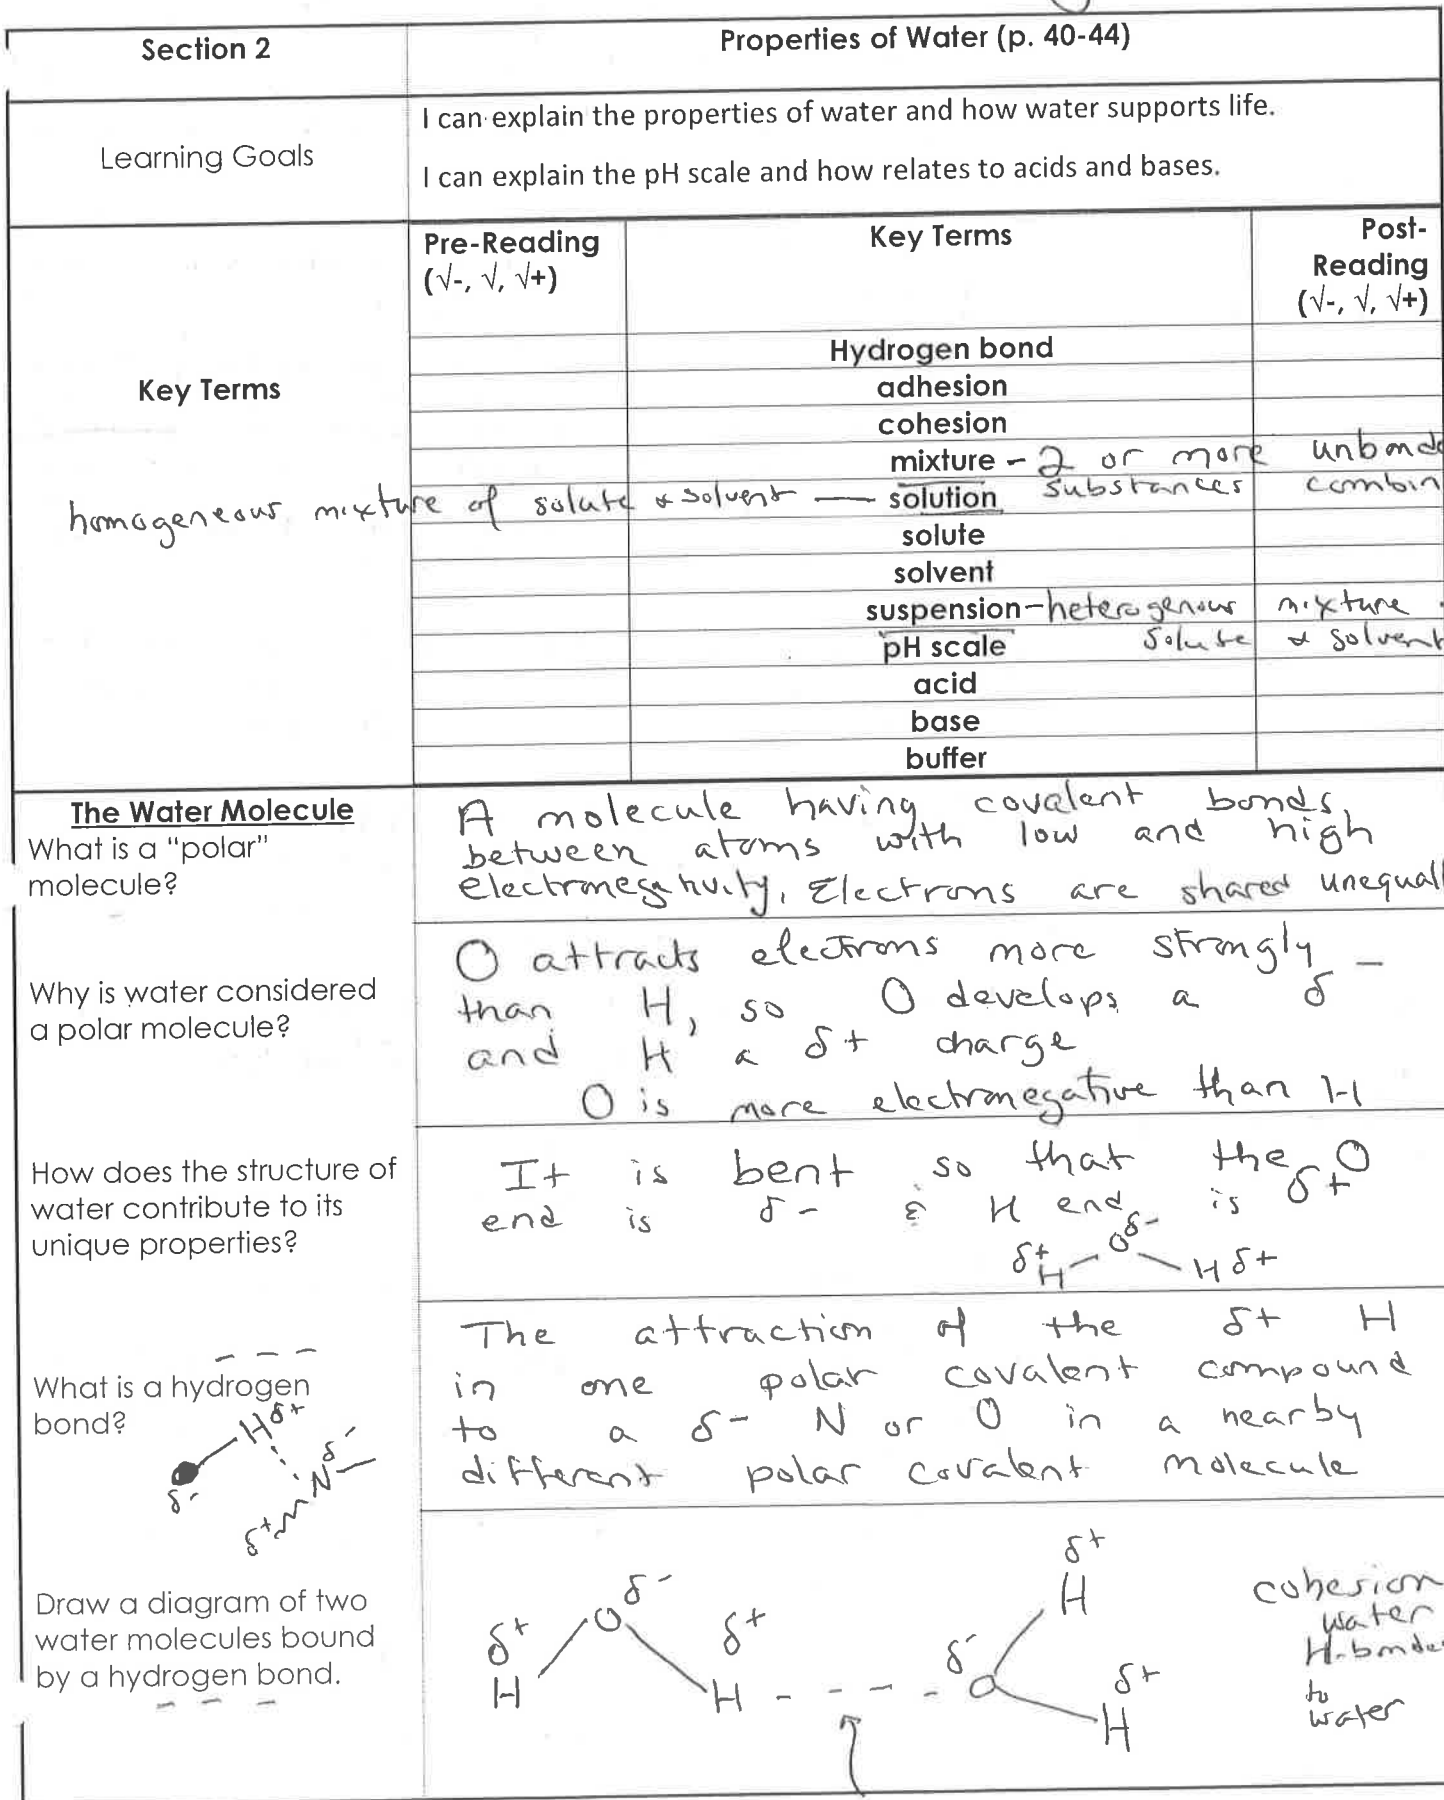 Section 2
Properties of Water (p. 40-44)
Learning Goals
I can explain the properties of water and how water supports life.
I can explain the pH scale and how relates to acids and bases.
Key Terms
Pre-Reading
(√-, √, √+)
Key Terms
Post-
Reading
(√-, √, √+)
Hydrogen bond
adhesion
cohesion
mixture - 2 or more unbonde
substances combin
homogeneous mixture of solute & solvent — solution
solute
solvent
suspension - heterogenous mixture
solute & solvent
pH scale
acid
base
buffer
The Water Molecule
What is a "polar"
molecule?
A molecule having covalent bonds
between atoms with low and high
electronegativity. Electrons are shared unequall
Why is water considered
a polar molecule?
O attracts electrons more strongly
than H, so O develops a δ-
and H a δ+ charge
O is more electronegative than H
How does the structure of
water contribute to its
unique properties?
It is bent so that the O
end is δ- & H end is δ+
δ+ H O δ- H δ+
What is a hydrogen
bond?
Hδ+
δ-
N δ-
δ+
The attraction of the δ+ H
in one polar covalent compound
to a δ- N or O in a nearby
different polar covalent molecule
Draw a diagram of two
water molecules bound
by a hydrogen bond.
δ+ H O δ- δ+ H - - - - δ- O
δ+ H
δ+ H
cohesion
water
H-bonde
to
water